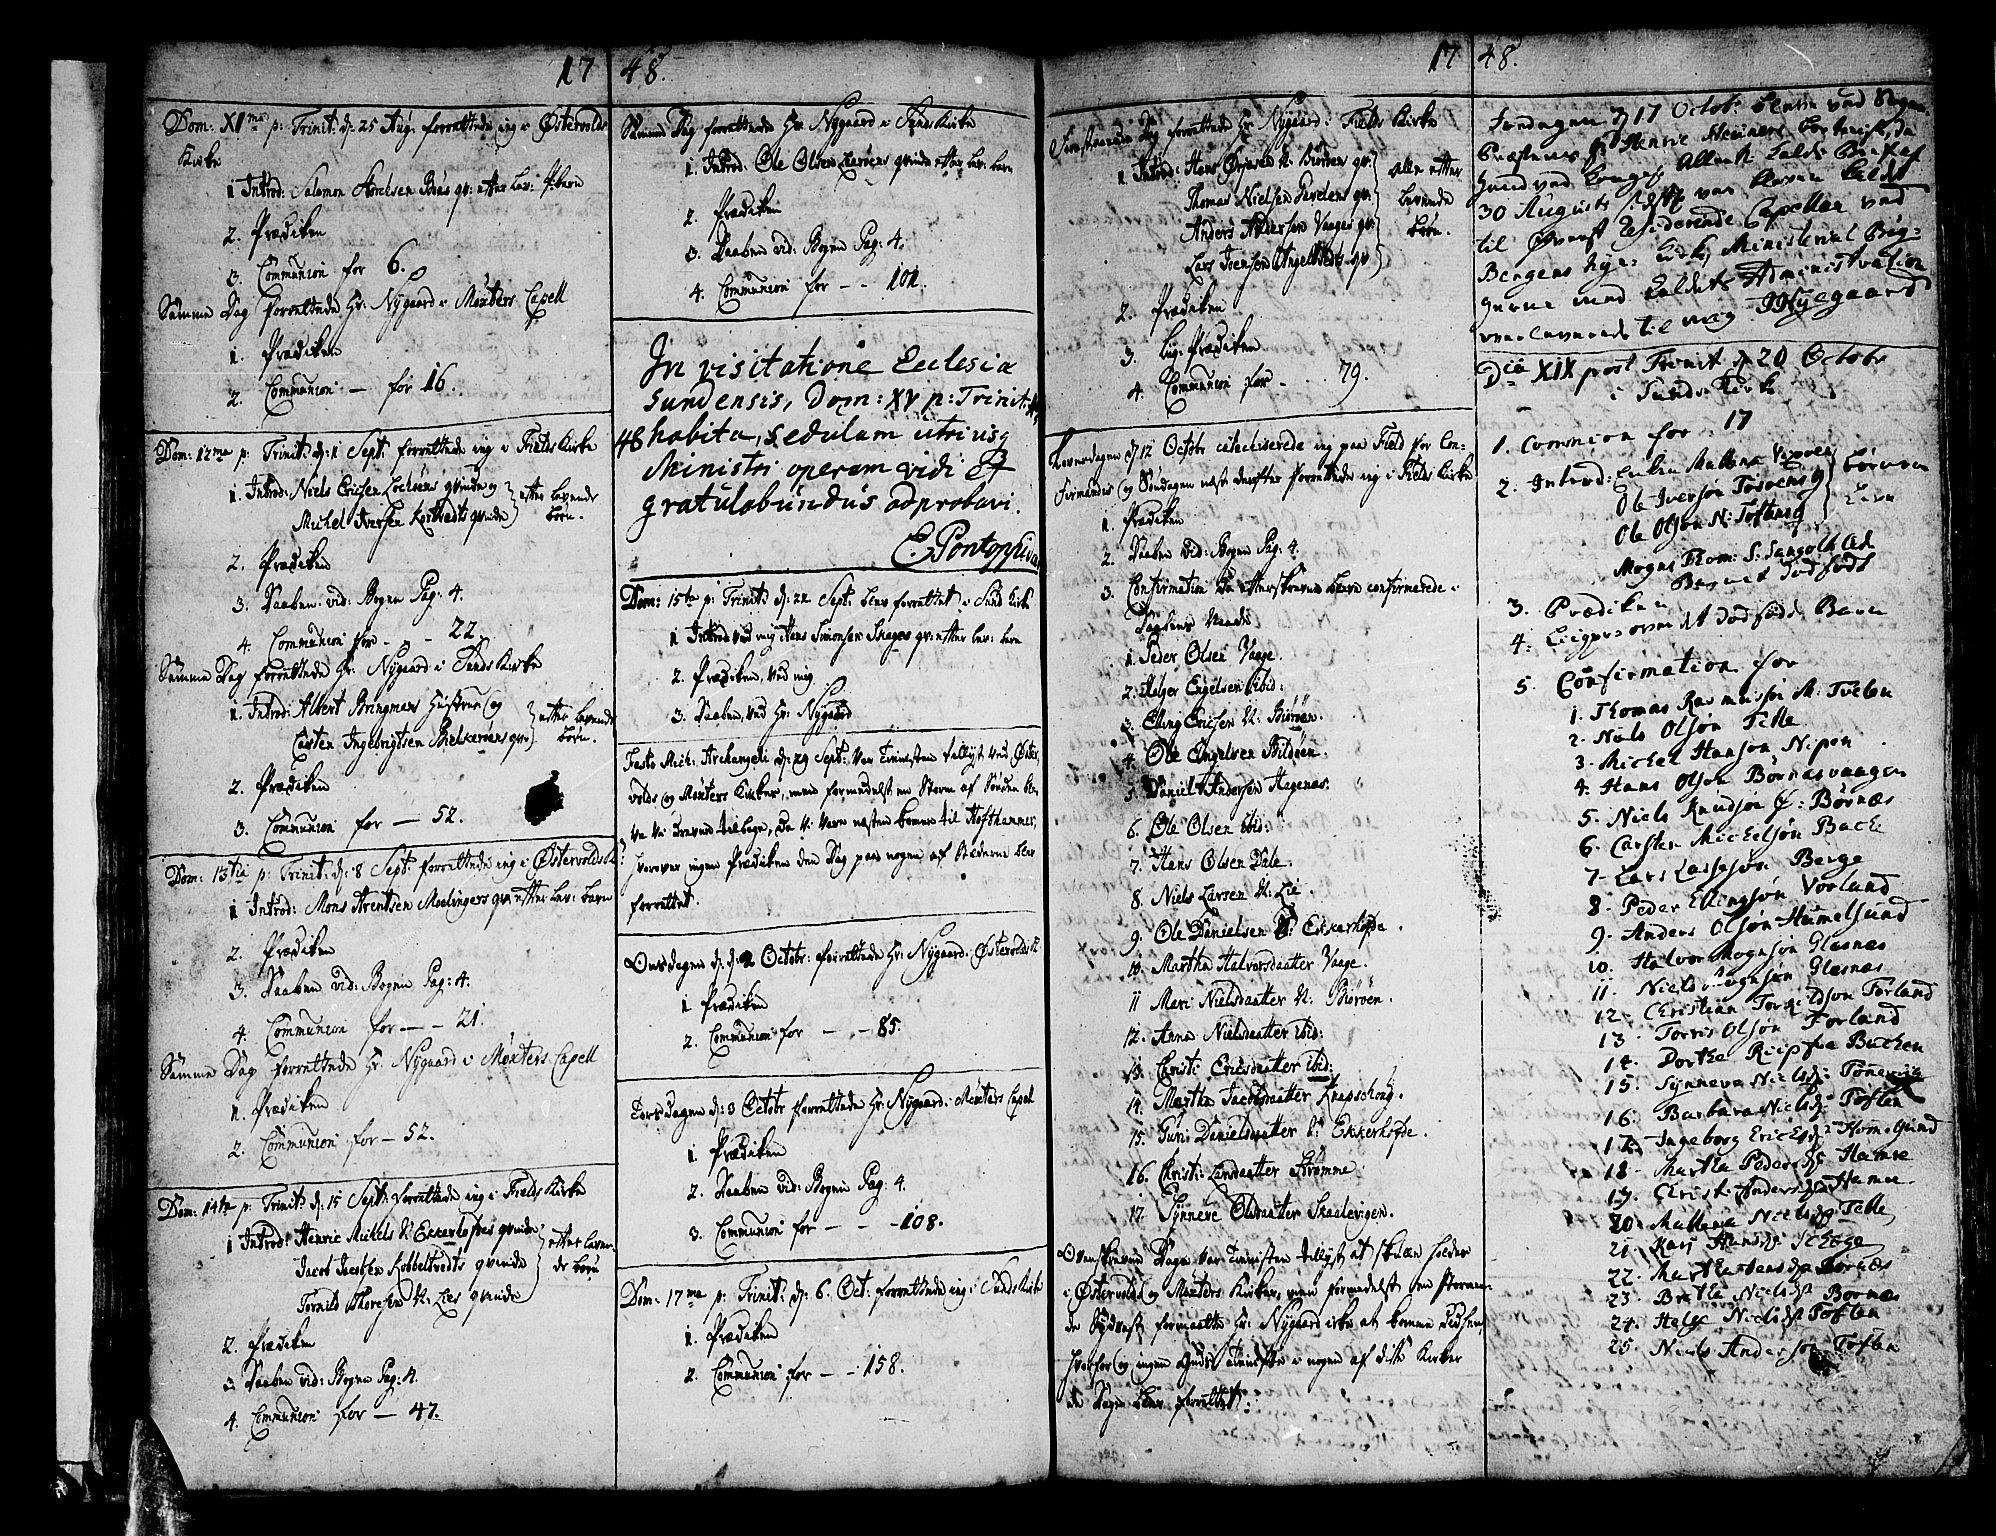 17 48.
Dom: XIma p: Trinit: d: 25 Aug: forrettede ieg i Østervolds
Kirke
1 Introd: Salomon Arnelsen Boes qv: efter lev: Pibarn
2. Prædiken
3. Communion for 6.
Samme Dag forrettede Hr: Nygaard i Møxters Capell
1. Prædiken
2. Communion — for 16.
Dom: 12ma p: Trinit: d: 1 Sept. forrettede ieg i Fields Kirke
1. Introd: Niels Ericsen qvinde og
Michel Iversen qvinde efter levende
børn.
2. Prædiken
3. Daaben vid: Bogen Pag: 4.
4. Communion for - - 22.
Samme Dag forrettede Hr: Nygaard i Sunds Kirke
1. Introd: Albert Bringmans Hustrue og
Casten Ingebrigtsen qv: efter levende
børn.
2. Prædiken
3. Communion for — 52.
Dom: 13tia p: Trinit: d: 8 Sept: forrettede ieg i Østervolds K:
1 Introd: Mons Arentsen Moelingers qv: efter lev: barn
2. Prædiken
3. Daaben vid: Bogen Pag: 4.
4. Communion for — - 21.
Samme Dag forrettede Hr: Nygaard i Møxters Capell
1. Prædiken
2. Communion for — 52.
Dom: 14ta p: Trinit: d: 15 Sept: forrettede ieg i Fields Kirke
1 Introd: Henric Michels N: Eckerhofdes qvinde
Jacob Jacobsen Kobbeltvedts qvinde efter leven-
Tornils Thoresen N: Lies qvinde de børn
2. Prædiken
3. Daaben vid: Bogen Pag. 4.
4. Communion for — 47.
Samme Dag forrettede Hr: Nygaard i Sunds Kirke
1. Introd: Ole Olsen Lerøens qvinde efter lev: barn
2. Prædiken
3. Daaben vid: Bogen Pag: 4.
4. Communion for - - 101.
In visitatione Ecclesiæ
Sundensis, Dom: XV p: Trinit:
48 habita, sedulam utriusq
Ministri operam vidi &
gratulabundus adprobavi.
E. Pontoppidan
Dom: 15ta p: Trinit: d: 22 Sept: blev forrettet i Sunds Kirke
1 Introd: ved mig Hans Simonsen Skages qv: efter lev: barn
2. Prædiken, ved mig
3. Daaben, ved Hr: Nygaard
Festo Mich: Archangeli d: 29 Sept: var Tienesten tillyst ved Øster-
volds og Møxters Kirker, men formedelst en Storm af Sønden ble-
ve vi drevne tilbage, da vi vare næsten komne til Hofthammer,
hvorover ingen Prædiken den Dag paa nogen af Stæderne blev
forrettet.
Onsdagen d: 2 Octobr: forrettede Hr: Nygaard i Østervolds K:
1 Prædiken
2. Communion for — - 85.
Torsdagen d: 3 Octobr forrettede Hr: Nygaard i Møxters Capel
1. Prædiken
2. Daaben vid: Bogen Pag: 4.
3. Communion for — - - 108.
Dom: 17ma p: Trinit: d: 6. Oct. forrettede ieg i Sunds Kirke
1. Prædiken
2. Communion for — - 158.
17 48.
Dag forrettede Hr. Nygaard i Fields Kirke
1 Introd: Hans N: Biørøen qv:
Thomas Nielsen qv: alle efter
Anders Andersen Vaages qv: levende
Lars Joensen Angeltvedts qv: børn.
2. Prædiken
3. Lig: Prædiken
4. Communion for - - - 79.
Løverdagen d: 12 Octobr catechiserede ieg paa Field for Con-
firmandes og Søndagen næst derefter forrettede ieg i Fields Kirke
1. Prædiken
2. Daaben vid: Bogen Pag: 4.
3. Confirmation da efterskrevne bleve confirmerede i
Daabens Naade
1. Peder Olsen Vaage.
2. Helger Engelsen ibid:
3. Elling Ericsen N: Biørøen.
4. Ole Engelsen Bildøen.
5. Daniel Andersen Hagenæs.
6. Ole Olsen ibid:
7. Hans Olsen Dale.
8. Niels Larsen N: Lie.
9. Ole Danielsen N: Ekkerhofde.
10. Martha Halvorsdaatter Vaage.
11 Mari Nielsdaatter N: Biørøen.
12. Anna Nielsdaatter ibid:
13. Christi Ericsdaatter ibid:
14. Martha Jacobsdaatter Knapschong.
15. Guri Danielsdaatter N: Ekkerhofde.
16. Christi Larsdaatter Strømme.
17. Synneve Olsdaatter Skaalevigen.
Ovenskrevne Dage var Tienesten tillyst at skulle holdes
i Østervolds og Møxters Kirker, men formedelst en stormen-
de Sydvest formaatte Hr: Nygaard icke at komme didhen,
hvorfor og ingen Guds Tieneste i nogen af disse Kirker
de Dage blev forrettet.
Torsdagen d 17 Octobr blev ved Sogne
Præstens Hr Henric Meiners bortreise, da
hand ved Kongel: Allern: Kalds Bref af
30 Augusti sidstl: var bleven kaldt
til Øverst Residerende Capellan ved
Bergens Nye Kirke, Ministerial Bøg-
gerne med Kaldets Administration
overleverede til mig JNyegaard
Die XIX post Trinit: d 20 Octobr
i Sunds Kirk
1. Comunion for 17
2. Introd:
Ole Iversøn børneren
Ole Olsøn N: Toftens q Levn
Mogns Thom: S:
Barnet dødfødt
3. Prædiken
4. over det dødfødde Barn
5. Confirmation for
1. Thomas Rasmusøn N: Tvetten
2. Niels Olsøn Telle
3. Michel Hansøn Nipen
4. Hans Olsøn Børnesvaagen
5. Niels Knudsøn Ø: Børnæs
6. Carsten Michelsøn Backe
7. Lars Lassesøn Berge
8. Peder Ellingsøn Vorland
9. Anders Olsøn Hummelsund
10. Halvor Mognsøn Glesnæs
11. Niels Mognsøn Glesnæs
12. Christian Torkildsøn Forland
13. Torris Olsøn Forland
14. Dorthe Buchen
15. Synneva Nielsd: Tønevig
16. Barbara Nielsd: Toften
17. Ingeborg Ericsd: Hom: Sund
18 Martha Pedersd: Hamre
19. Christi Andersd: Hamre
20. Mattena Nielsd: Telle
21. Kari Hansd: Schoge
22. Martha Jensd: Børnæs
23. Brethe Nielsd: Bornæs
24. Helge Nielsd: Toften
25. Niels Andersøn Toften